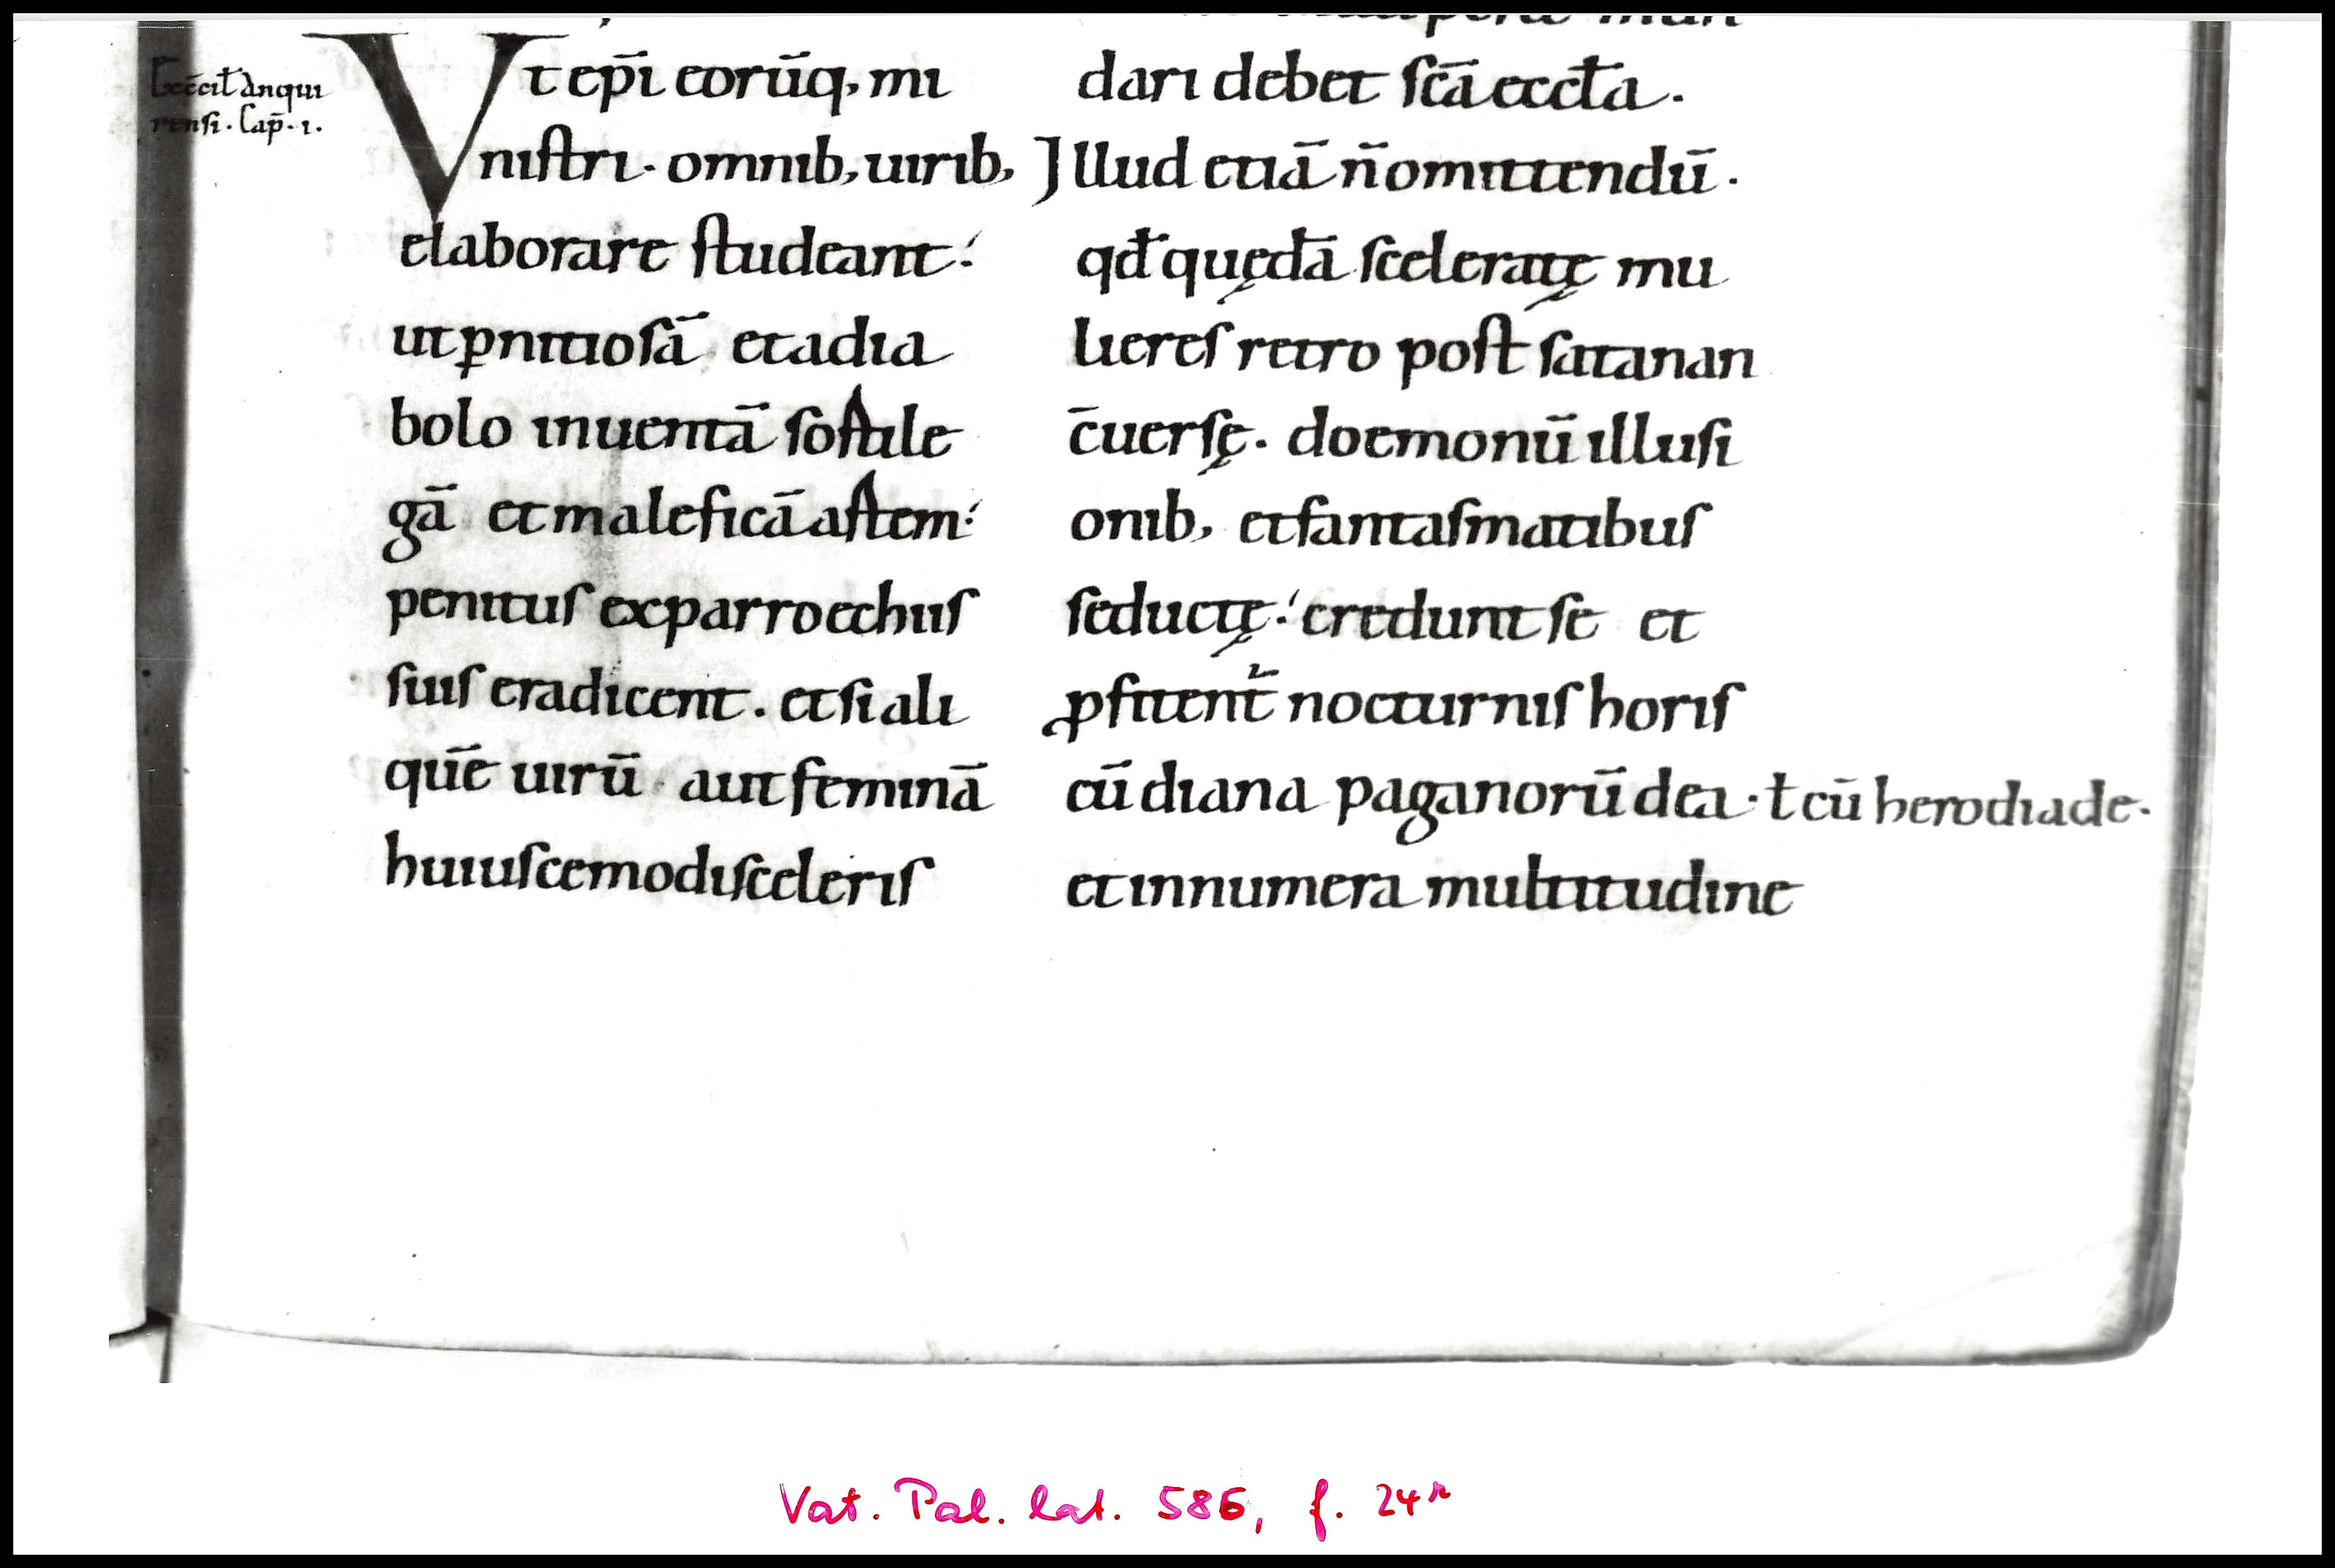 Ex c̄cil̵ Anqui
rensi. Cap̄. 1.
Vt ep̄i eorūq; mi
nistri. omnib; uirib;
elaborare studeant.
ut ꝑnitiosā et a dia
bolo inuentā sortile
gā et maleficā artem.
penitus ex parroechiis
suis eradicent. et si ali
quē uirū aut feminā
huiuscemodi sceleris
dari debet sc̄a eccl̵a.
Illud etiā n̄ omittendū.
qđ quędā sceleratę mu
lieres retro post satanan
c̄uersę. doemonū illusi
onib; et fantasmatibus
seductę. credunt se et
ꝓfitent᷑ nocturnis horis
cū diana paganorū dea. ł cū herodiade.
et innumera multitudine
Vat. Pal. lat. 586, f. 24r